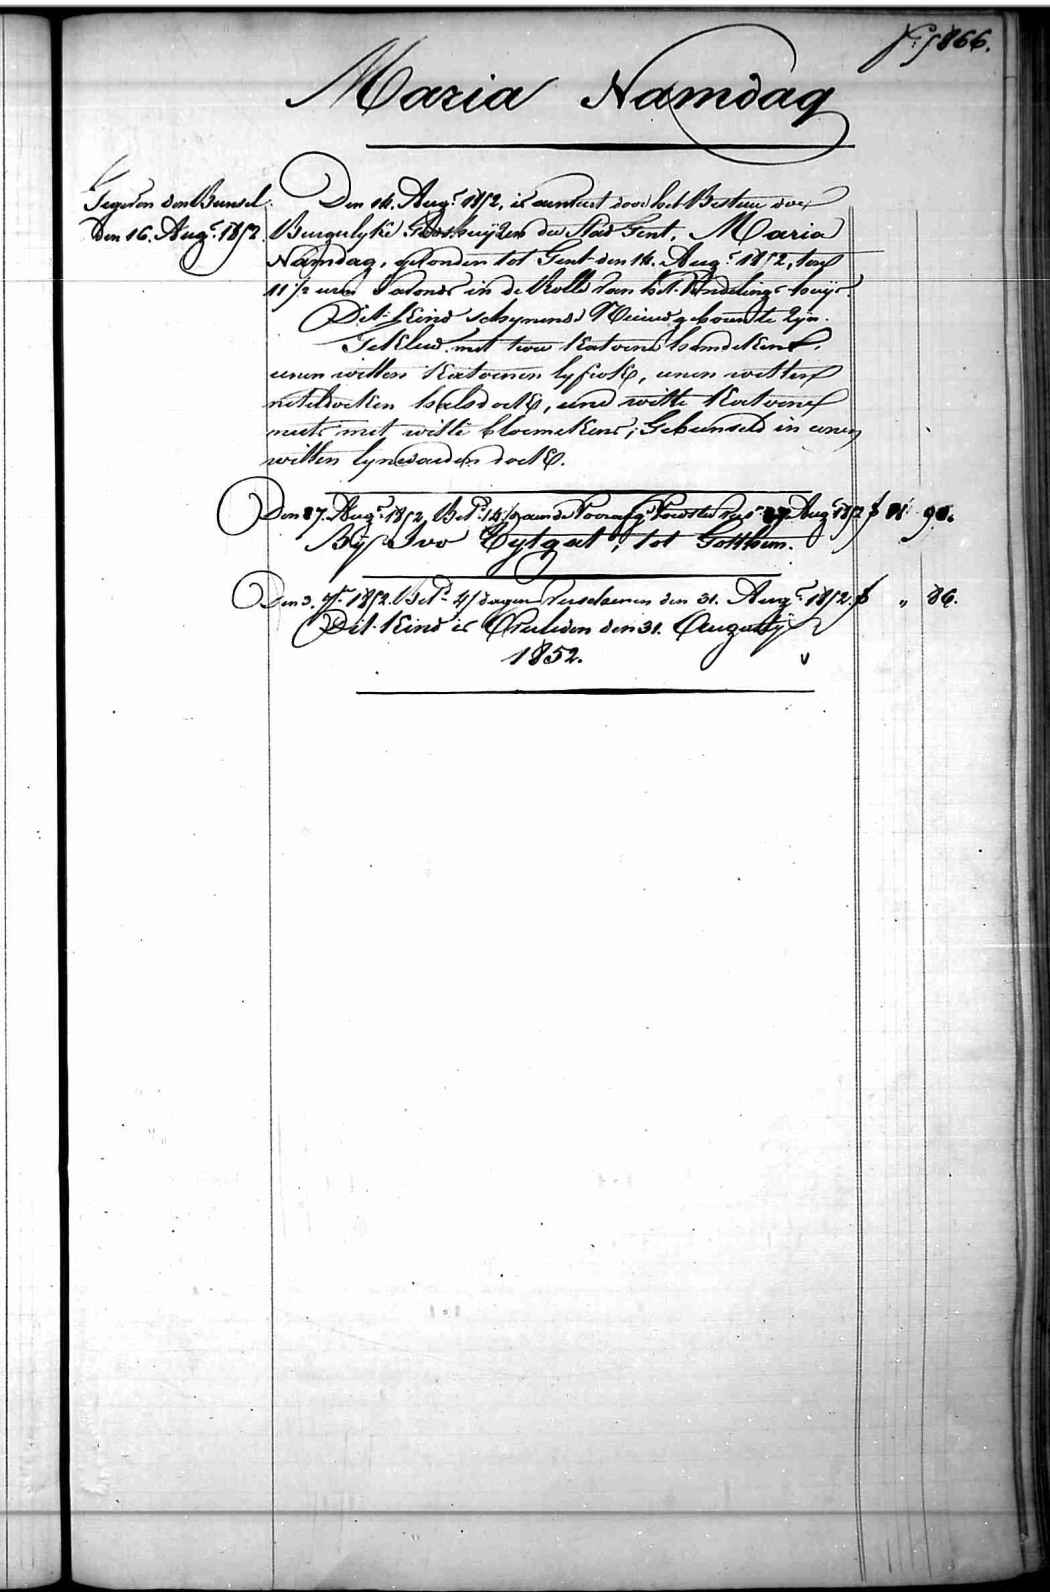 f.º 1866.
Maria Namdag
Gegeven den Bunsel
den 16. Augt. 1852.
Den 14. Augt. 1852, is aenveert door het Bestuer der
Burgerlyke Godshuyzen der Stad Gent, Maria
Namdag, gevonden tot Gent den 14. Augt. 1852, ten
11 1/2 uren s'avonds in de Rolle van het Vindelings-huys.
Dit Kind schynende Nieuw geboren te zyn.
Gekleed met twee katoene hemdekens,
eenen witten katoenen lyfrok, eenen witten
neteldoeken halsdoek, eene witte katoene
muts met witte bloemekens; Gebunseld in eenen
witten lynwaeden doek.
Den 27. Augt. 1852, Bet. 14/ aen de Voorzorg Voedster 27 Augt. 1852 f 1 90.
By Ivo Cytgat, tot Gotthem.
Den 3. 7br. 1852. Bet. 4/ dagen verscheenen den 31. Augt. 1852. f „ 86.
Dit Kind is Overleden den 31. Augusty
1852.